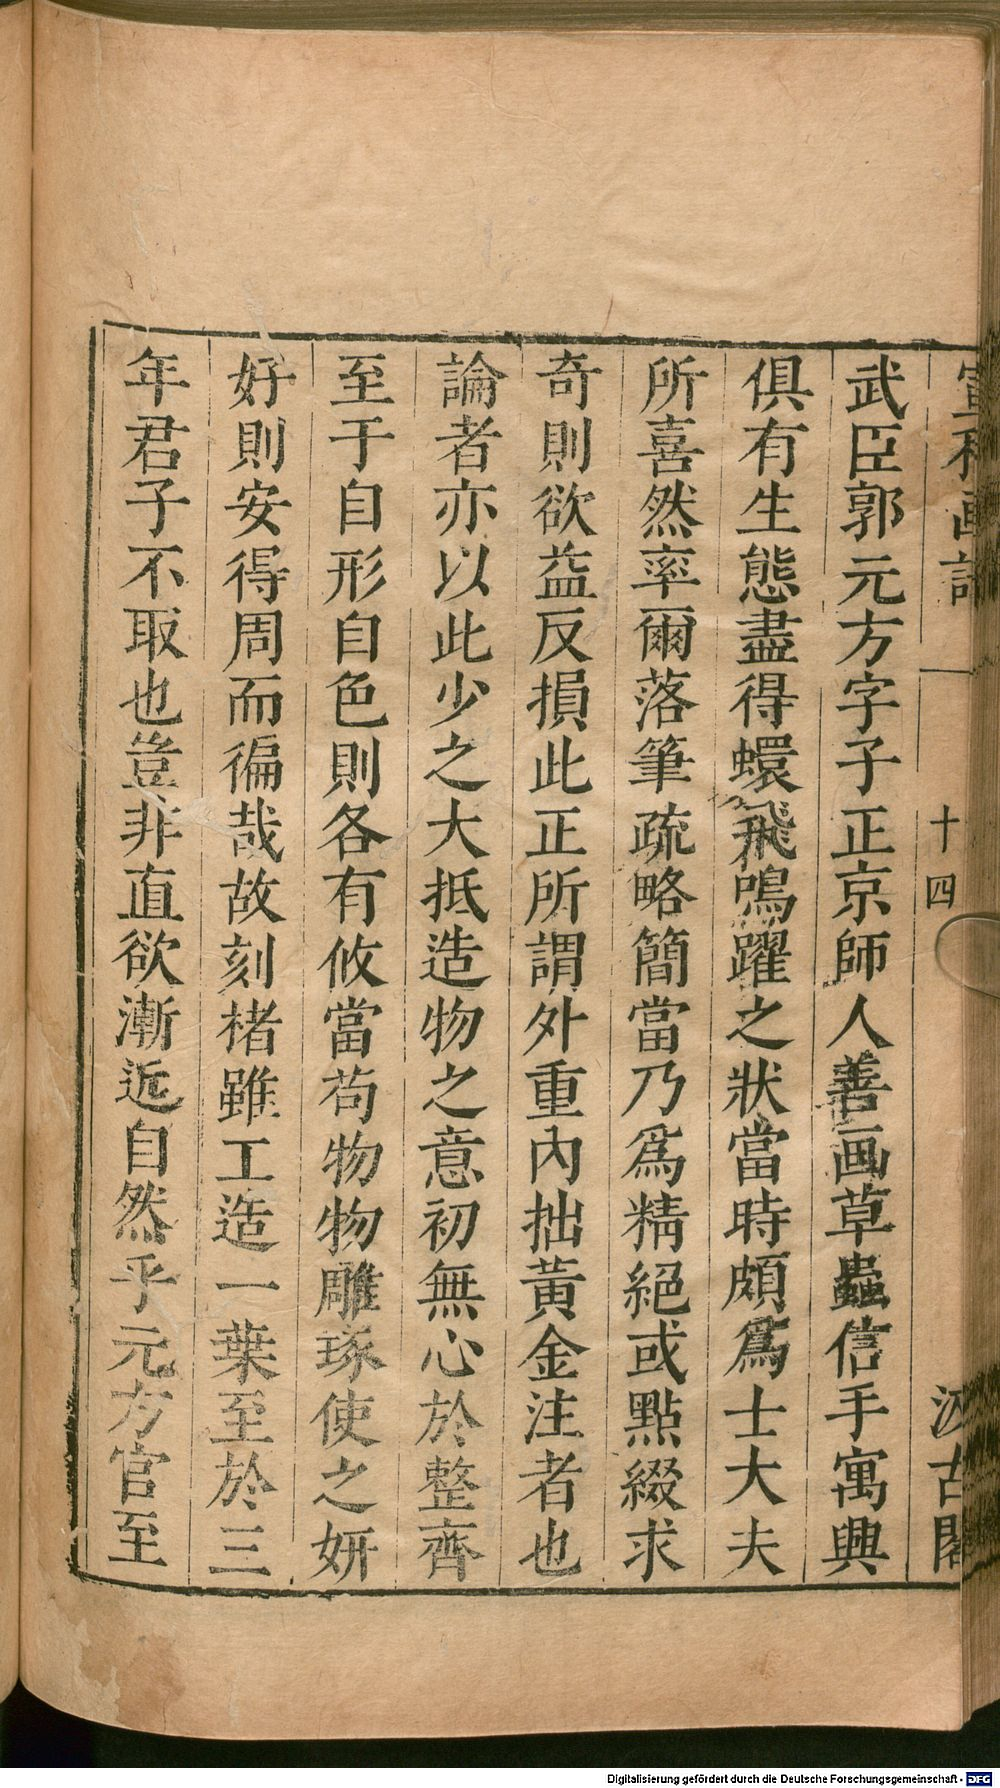 宣和画譜 一 十四 汲古閣
武臣郭元方字子正京師人善画草蟲信手寓興
俱有生態盡得蠉飛鳴躍之狀當時頗爲士大夫
所喜然率爾落筆疏略簡當乃爲精絕或點綴求
奇則欲益反損此正所謂外重內拙黃金注者也
論者亦以此少之大抵造物之意初無心於整齊
至于自形自色則各有攸當苟物物雕琢使之妍
好則安得周而徧哉故刻楮雖工造一葉至於三
年君子不取也豈非直欲漸近自然乎元方官至
Digitalisierung gefördert durch die Deutsche Forschungsgemeinschaft - DFG